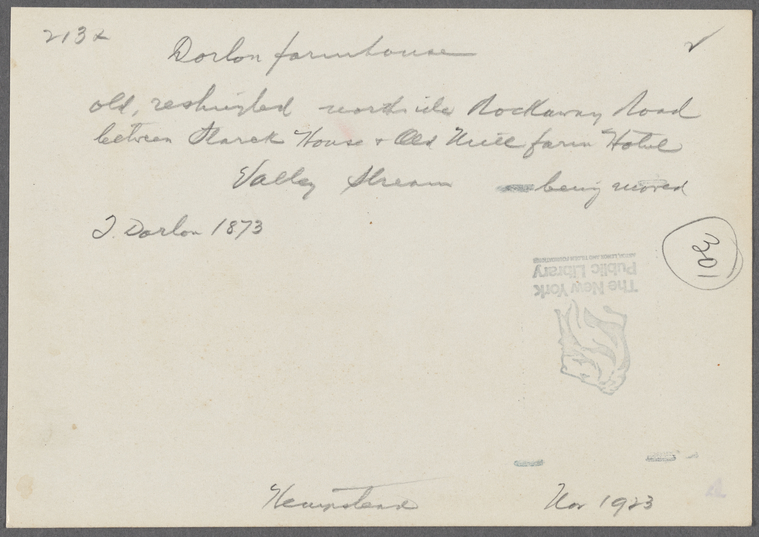 213x
Dorlon farmhouse
old, reshingled north side Rockaway Road
between House + Old Mill farm Hotel
Valley Stream being moved
J. Dorlon 1873
103
The New York
Public Library
Hempstead Nov 1923